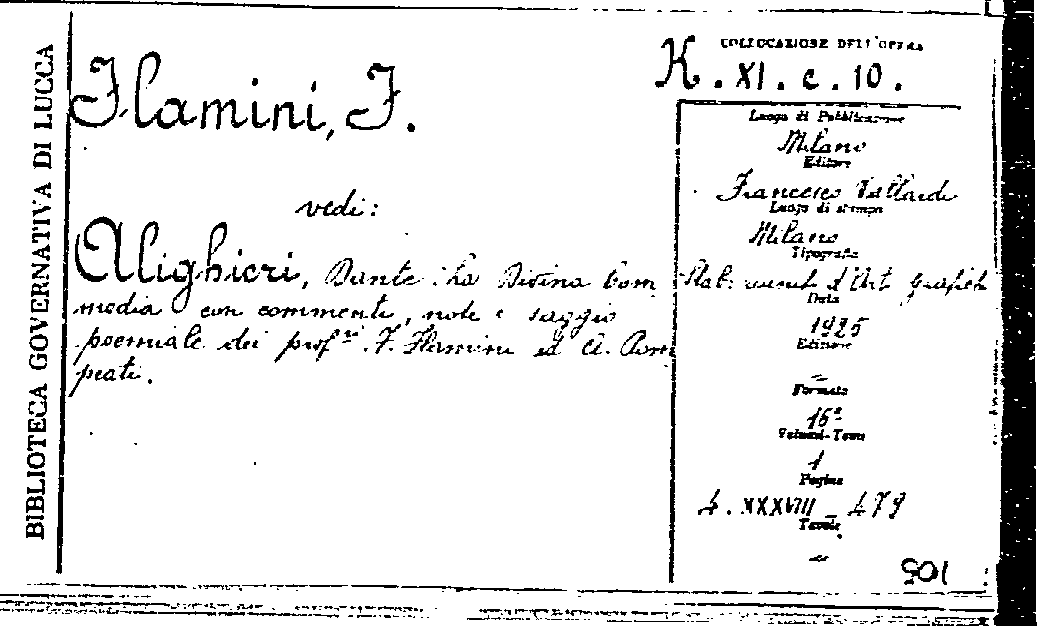 BIBLIOTECA GOVERNATIVA DI LUCCA
Flamini, F.
vedi:
Alighieri, Dante: La Divina Com
media con commenti, note e saggio
proemiale dei prof.ri F. Flamini ed A. Pom
peati.
COLLOCAZIONE DELL'OPERA
K. XI. c. 10.
Luogo di Pubblicazione
Milano
Editore
Francesco Vallardi
Luogo di stampa
Milano
Tipografia
Stab: riunit d'Arti grafich
Data
1925
Edizione
—
Formato
16º
Volumi-Tomi
1
Pagine
4. XXXVIII – 479
Tavole
—
901